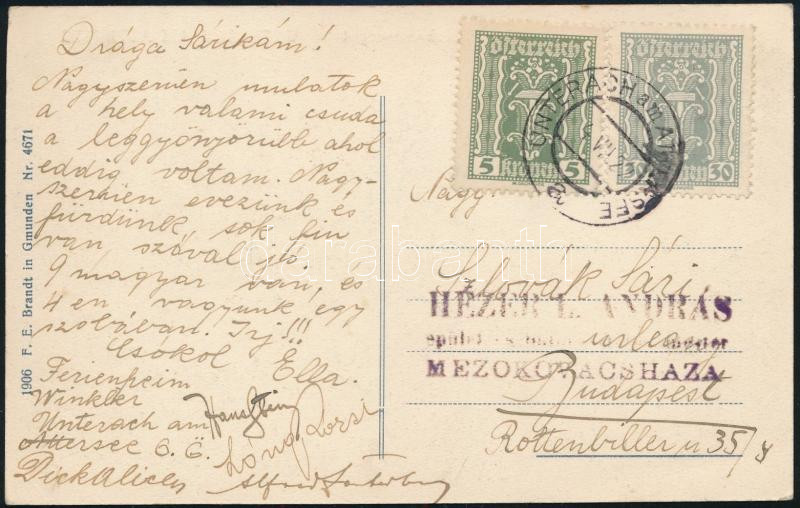 Drága Sárikám!
Nagyszerüen mulatok
a hely valami csuda
a leggyönyörübb ahol
eddig voltam. Nagy-
szerüen evezünk és
fürdünk, sok fiu
van, szóval jó.
9 magyar van, és
4 en vagyunk egy
szobában. Irj!!!
Csókol Ella.
Ferienheim
Winkler
Unterach am
Attersee O. Ö.
Hans Stein
Láng Rózsi
Dick Alice
Alfred
1906 F. E. Brandt in Gmunden Nr. 4671
Österreich
5 Kronen 5
Österreich
30 Kronen 30
UNTERACH am ATTERSEE
Nagys
Slovák Sári
urleány
Budapest
Rottenbiller u 35/
HÉZER L. ANDRÁS
épület
MEZŐKOVÁCSHÁZA
darabanth